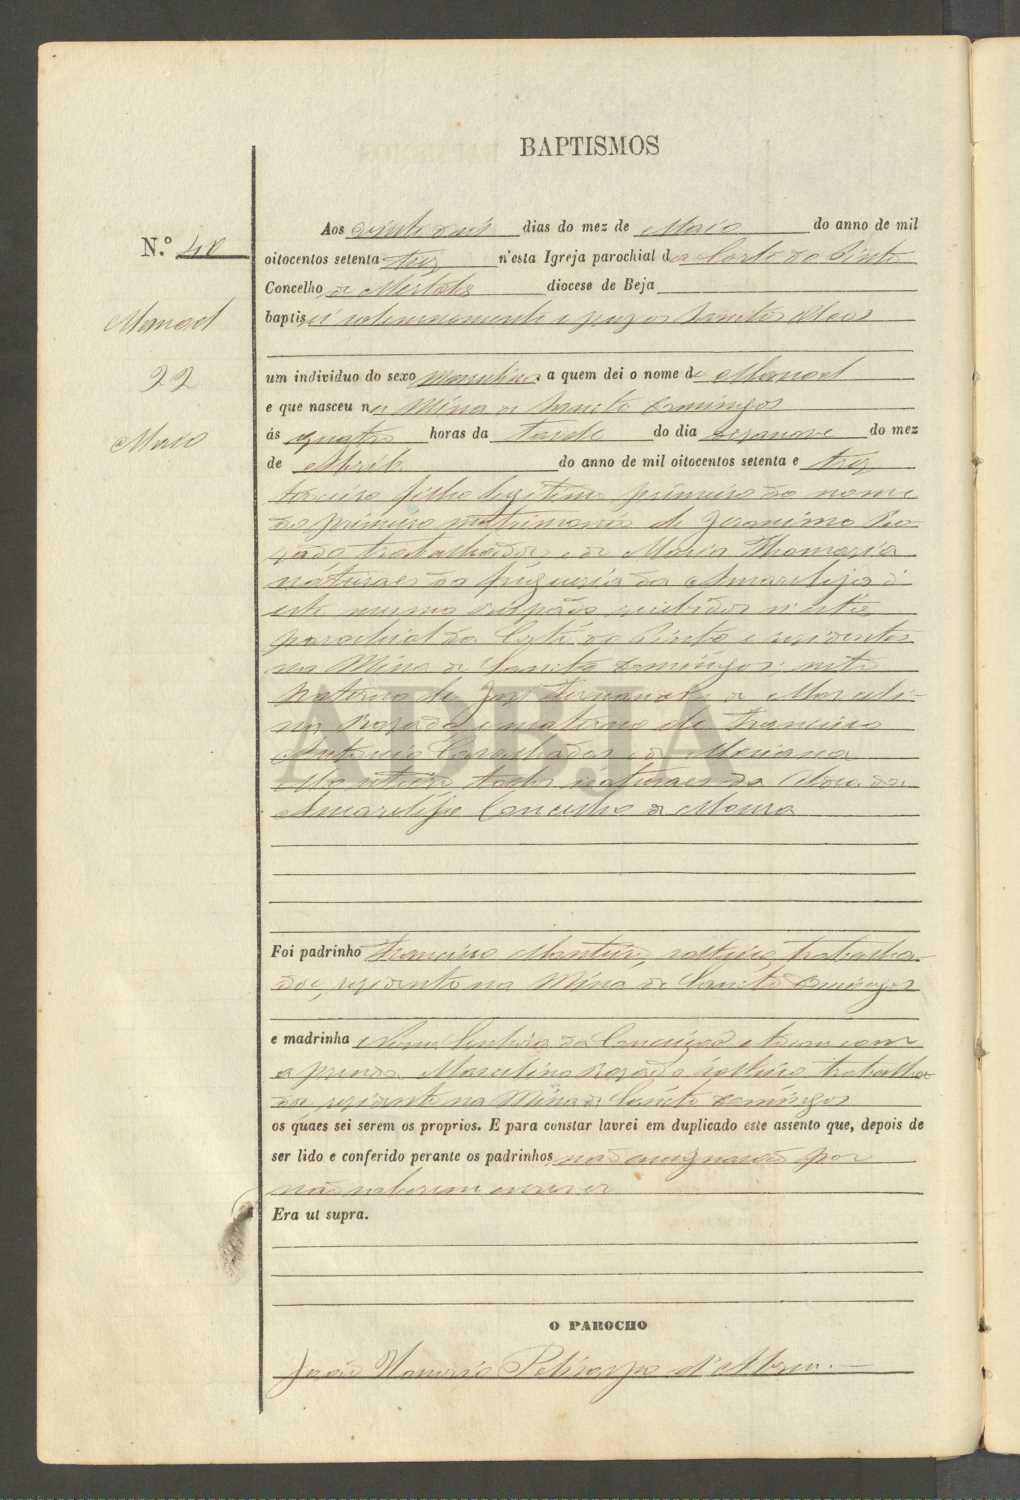 BAPTISMOS
N.º 40
Manoel
22
Maio
Aos vinte dois dias do mez de Maio do anno de mil
oitocentos setenta trez n'esta Igreja parochial da Corte do Pinto
Concelho de Mertola diocese de Beja
baptisei solemnemente e puz os Sanctos Oleos
um individuo do sexo masculino a quem dei o nome de Manoel
e que nasceu na Mina de Sancto Domingos
ás quatro horas da tarde do dia dezanove do mez
de Abril do anno de mil oitocentos setenta e trez
terceiro filho legitimo primeiro do nome
do primeiro matrimonio de Jeronimo Ro-
zado trabalhador, e de Maria Thomazia
naturaes da freguezia da Amareleja d'
este mesmo Bispado, recebidos n'esta
parochial da Corte do Pinto e rezidentes
na Mina de Sancto Domingos; neto
Paterno de José Fernandes e Marceli-
na Rozado, e materno de Francisco
Antonio e de Mariana
todos naturaes da
Amareleja Concelho de Moura
Foi padrinho Francisco Monteiro, solteiro, trabalha-
dor, rezidente na Mina de Sancto Domingos
e madrinha Nossa Senhora da Conceição e tocou com
a prenda Marcelino Rozado solteiro trabalha
dor rezidente na Mina de Sancto Domingos
os quaes sei serem os proprios. E para constar lavrei em duplicado este assento que, depois de
ser lido e conferido perante os padrinhos não assignarão por
não saberem escrever
Era ut supra.
O PAROCHO
João d'
ADBJA